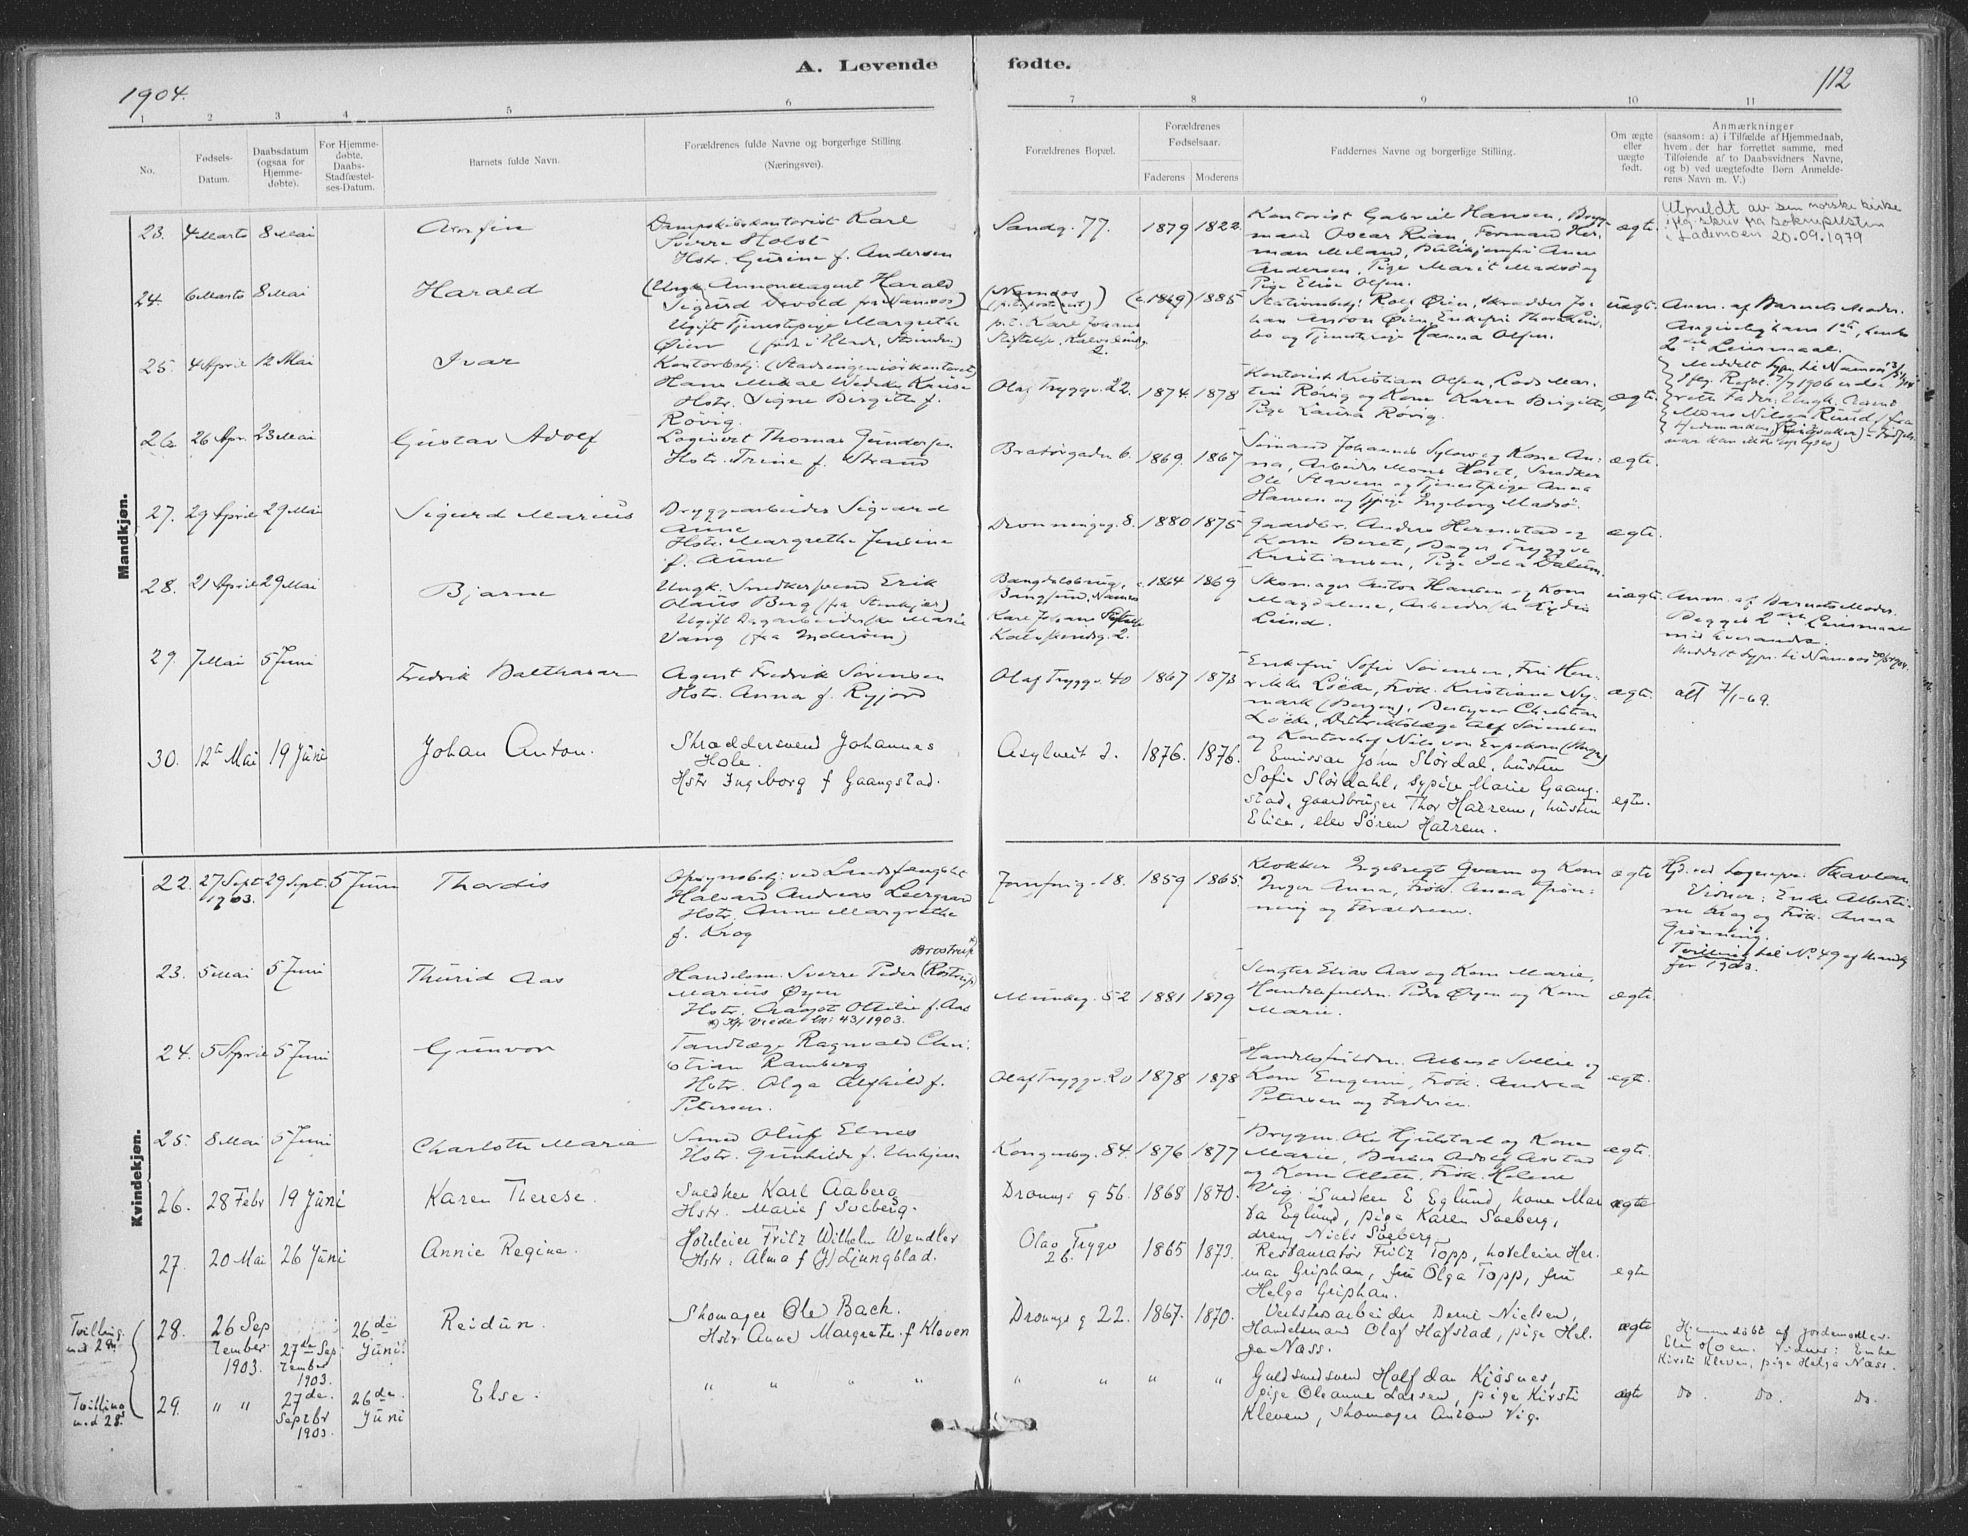 1904.
A. Levende fødte.
112
1 2 3 4 5 6 7 8 9 10 11
No.
Fødsels-Datum.
Daabsdatum (ogsaa for Hjemmedøbte).
For Hjemmedøbte, Daabs-Stadfæstelses-Datum.
Barnets fulde Navn.
Forældrenes fulde Navne og borgerlige Stilling (Næringsvei).
Forældrenes Bopæl.
Forældrenes Fødselsaar.
Faderens Moderens
Faddernes Navne og borgerlige Stilling.
Om ægte eller uægte født.
Anmærkninger
(saasom: a) i Tilfælde af Hjemmedaab, hvem der har forrettet samme, med Tilføiende af to Daabsvidners Navne, og b) ved uægtefødte Børn Anmelderens Navn m. V.)
Mandkjøn.
23. 4 Marts 8 Mai
Arnfin
Dampskibskontorist Karl
Sverre Holst
Hstr. Gurine f. Andersen
Sandg. 77. 1879 1822
Kontorist Gabriel Hansen, Brygmand Oscar Rian, Formand Herman Meland,
Andersen, Pige Marit Madsø og
Pige Elise Olsen.
ægte.
Utmeldt av den norske kirke
iflg. skriv fra soknepresten
i Lademoen 20.09.1979
24. 6 Marts 8 Mai
Harald
(Ungk. Annonceagent Harald
Sigurd Devold fra Namsos)
Ugift Tjenestepige Margrethe
Øien
(Namsos
p.t. Karl Johans
Stiftelse,
2.
(1869) 1885
Stationsbetj. Rolf Øien, Skrædder Johan Anton Øien, Enkefru
og Tjenestepige Hanna Olsen.
uægte.
Anm. af Barnets Moder.
Angivelig hans 1ste, hendes
2det Leiermaal.
25. 4 April 12 Mai
Ivar
Kontorbetj. (Stadsingeniørkontoret)
Hans Mikal Wedike Kruse
Hstr. Signe Bergitte f.
Røvig.
Olaf Tryggv. 22. 1874. 1878
Kontorist Kristian Olsen, Lods Martin Røvig og Kone Karen Birgitte,
Pige Laura Røvig.
ægte.
26. 26 Apr. 23 Mai
Gustav Adolf
Logivert Thomas Gundersen
Hstr. Trine f. Strand
Bratørgaden 6. 1869. 1867
Sømand Johannes Sylow og Kone Anna, Arbeider Mons Horst, Snedker
Ole Stavem og Tjenestepige Anna
Hansen og Tj.pige Ingeborg Madsø.
ægte.
27. 29 April 29 Mai
Sigurd Marius
Bryggearbeider Sigvard
Aune
Hstr. Margrethe Jensine
f. Aune
Dronningg. 8. 1880 1875
Gaardbr. Anders Hermstad og
Kone Beret, Bager Tryggve
Kristiansen, Pige Ida Dalum.
ægte.
28. 21 April 29 Mai
Bjarne
Ungk. Snedkersvend Erik
Olaus Berg (fra Stenkjær)
Ugift Dagarbeiderske Marie
Vang (fra Inderøen)
Bangdalsbrug,
Bangsund, Namsos
Karl Johans Stiftelse
2.
1864 1869
Skomager Anton Hansen og Kone
Magdalene, Arbeiderske Lydia
Lund.
uægte.
Anm. af Barnets Moder.
Begges 2det Leiermaal
med hverandre.
29. 7 Mai 5 Juni
Fredrik Balthasar
Agent Fredrik Sørensen
Hstr. Anna f. Ryjord
Olaf Tryggv. 40 1867 1873
Enkefru Sofie Sørensen, Fru Henrikke Løcke, Frøk. Kristiane Nymark (Bergen), Bestyrer Christian
Løcke, Distriktslæge Alf Sørensen
og Kontorchef Nils von Erpekom (Bergen)
ægte.
att 7/1-69.
30. 12te Mai 19 Juni
Johan Anton.
Skræddersvend Johannes
Hole.
Hstr Ingeborg f Gaangstad.
Asylveit 2. 1876. 1876.
Emissær John Slørdal, hustru
Sofie Slørdahl, sypige Marie Gaangstad, gaardbruger Thor Hatrem, hustru
Elise, elev Søren Hatrem.
egte.
Kvindekjøn.
22. 27 Sept 1903. 29 Sept. 5 Juni
Thordis
Opsynsbetj. ved Landsfængslet
Halvard Andreas Leergaard
Hstr. Anne Margrethe
f. Krog
Jomfrug. 18. 1859 1865.
Klokker Ingebregt Qvam og Kone
Inger Anna, Frøk. Anna Grønning og Forældrene.
ægte
Hjd. ved Lægespr. Skavlan.
Vidner: Enke Albertine Krog og Frøk. Anna
Grønning.
Tvilling til No. 49 af Mandkj.
for 1903.
23. 5 Mai 5 Juni
Thurid Aas
Handelsm. Sverre Peder (Rostrup)
Brostrup*
Marius Øyen
Hstr. Aagot Ottilie f. Aas
Munkeg. 52 1881 1879
Slagter Elias Aas og Kone Marie,
Handelsfuldm. Peder Øyen og Kone
Marie.
ægte.
24. 5 April 5 Juni
Gunvor
Tandlæge Ragnvald Christian Ramberg
Hstr. Olga Alfhild f.
Petersen.
Olaf Tryggv. 20 1878 1878
Handelsfuldm. Albert Sollie og
Kone Eugenie, Frøk. Andrea
Petersen og Faderen.
ægte.
25. 8 Mai 5 Juni
Charlotte Marie
Smed Oluf Elnes
Hstr. Gunhilde f.
Kongensg. 84 1876 1877
Brygm. Ole Hjulstad og Kone
Marie, Barber Adolf Aastad
og Kone Alette, Frøk. Helene
Vig.
ægte.
26. 28 Febr 19 Juni
Karen Therese.
Snedker Karl Aaberg
Hstr. Marie f Soeberg.
Dronngs g 56. 1868 1870.
Snedker E Eglund, kone Marta Eglund, pige Karen Soeberg,
dreng Niels Soeberg.
ægte
27. 20 Mai 26 Juni
Annie Regine.
Hoteleier Fritz Wilhelm Wendler
Hstr. Alma f (J) Ljungblad.
Olav Trygv
26. 1865 1873.
Restauratør Fritz Topp, hoteleier Herman Griphan, fru Olga Topp, fru
Helga Griphan.
egte
Tvilling med 29.
28. 26 September 1903. 27de September 1903. 26de Juni.
Reidun.
Skomager Ole Back.
Hstr Anne Margrete f Kleven
Dronngs g 22. 1867. 1870.
Verkstedarbeider Bernt Nielsen,
Handelsmand Olaf Hafstad, pige Helga Næss.
ægte
Hjemmedøbt af jordemoder
Elen Moen. Vidner: Enke
Kirsti Kleven, pige Helga Næss.
Tvilling med 28.
29. " " 27de Septbr 1903. 26de Juni
Else.
" " " " " " " "
Guldsmedsvend Halfdan Kjøsnes,
pige Oleanne Larsen, pige Kirsti
Kleven, skomager Anton Vig.
ægte
Do. Do. Do.